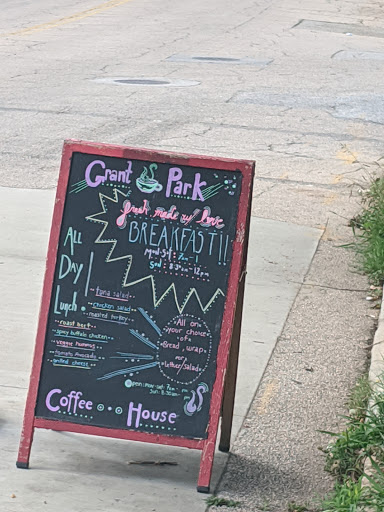 Grant Park
fresh made w/ love
BREAKFAST!!
All
Day
Lunch
tuna salad
chicken salad
roasted turkey
roast beef
spicy buffalo chicken
veggie hummus
tomato avocado
grilled cheese
All on
your choice
of
Bread, wrap
or
lettuce/salad
Coffee House